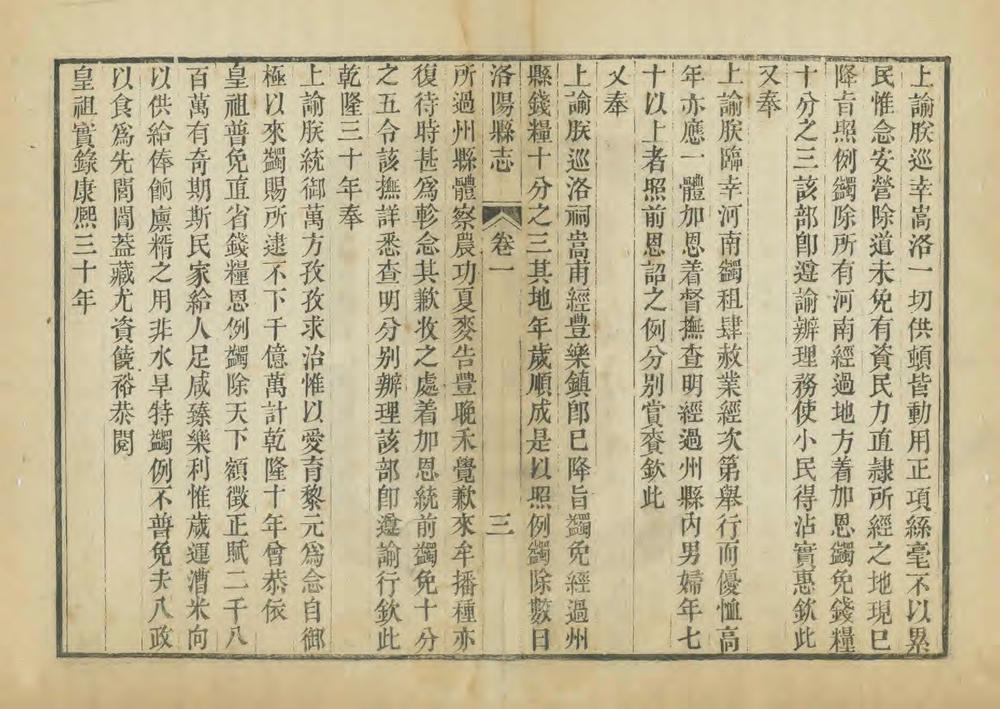 上諭朕巡幸嵩洛一切供頓皆動用正項絲毫不以累
民惟念安營除道未免有資民力直隸所經之地現已
降旨照例蠲除所有河南經過地方着加恩蠲免錢糧
十分之三該部卽遵諭辦理務使小民得沾實惠欽此
又奉
上諭朕臨幸河南蠲租肆赦業經次第舉行而優恤高
年亦應一體加恩着督撫查明經過州縣內男婦年七
十以上者照前恩詔之例分別賞賚欽此
又奉
上諭朕巡洛祠嵩甫經豐樂鎮卽已降旨蠲免經過州
縣錢糧十分之三其地年歲順成是以照例蠲除數日
洛陽縣志 卷一 三
所過州縣體察農功夏麥告豐晚禾覺歉來牟播種亦
復待時甚爲軫念其歉收之處着加恩統前蠲免十分
之五令該撫詳悉查明分别辦理該部卽遵諭行欽此
乾隆三十年奉
上諭朕統御萬方孜孜求治惟以愛育黎元爲念自御
極以來蠲賜所逮不下千億萬計乾隆十年曾恭依
皇祖普免直省錢糧恩例蠲除天下額徵正賦二千八
百萬有奇期斯民家給人足咸臻樂利惟歲運漕米向
以供給俸餉廪糈之用非水旱特蠲例不普免夫八政
以食爲先閭閻蓋藏尤資饒裕恭閱
皇祖實錄康熙三十年